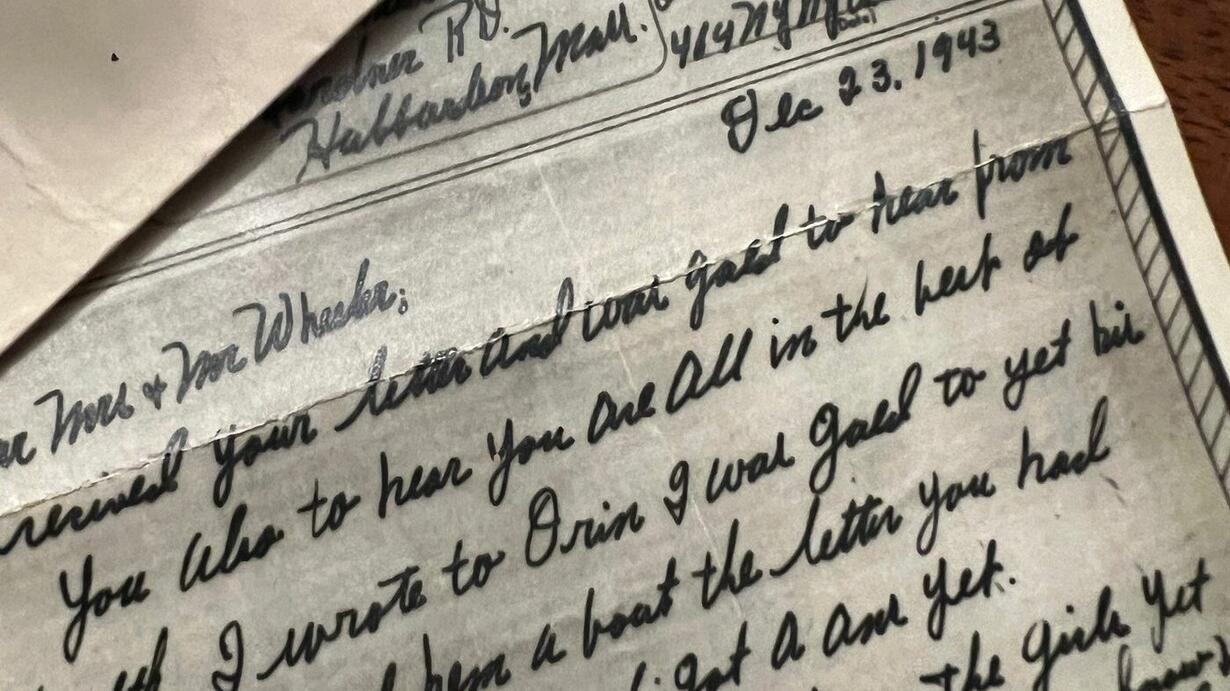 RD.
Hubbardson, Mass.
Dec 23, 1943
Mrs & Mr Wheeler;
received your letter and was gald to hear from
You also to hear You are All in the best of
I wrote to Orin I was gald to get his
a bout the letter you had
got a ans yet.
the girls yet
know